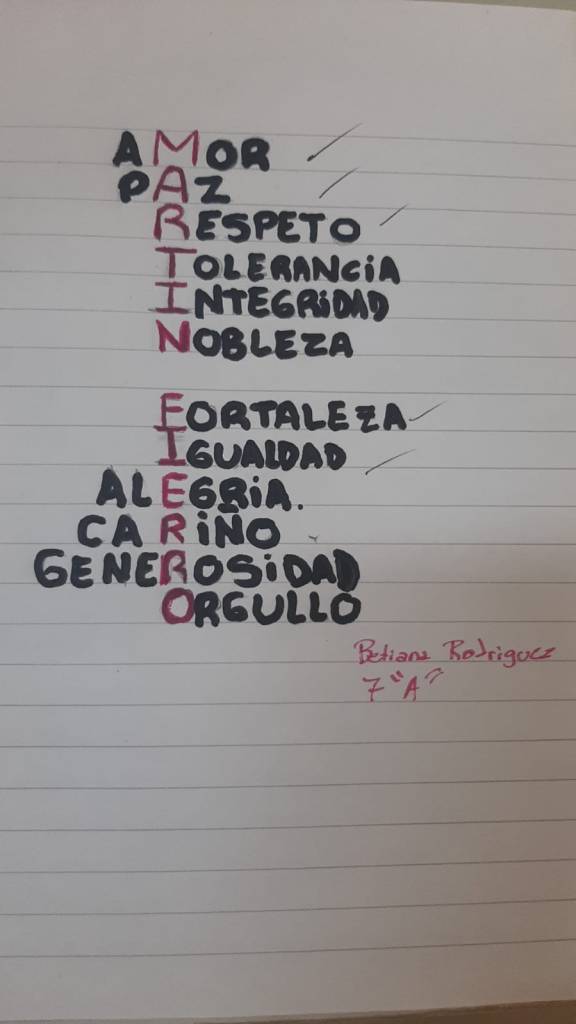 AMOR
PAZ
RESPETO
TOLERANCiA
INTEGRiDAD
NOBLEZA
FORTALEZA
IGUALDAD
ALEGRiA.
CARiÑO
GENEROSiDAD
ORGULLO
Betiana Rodriguez
7 "A"